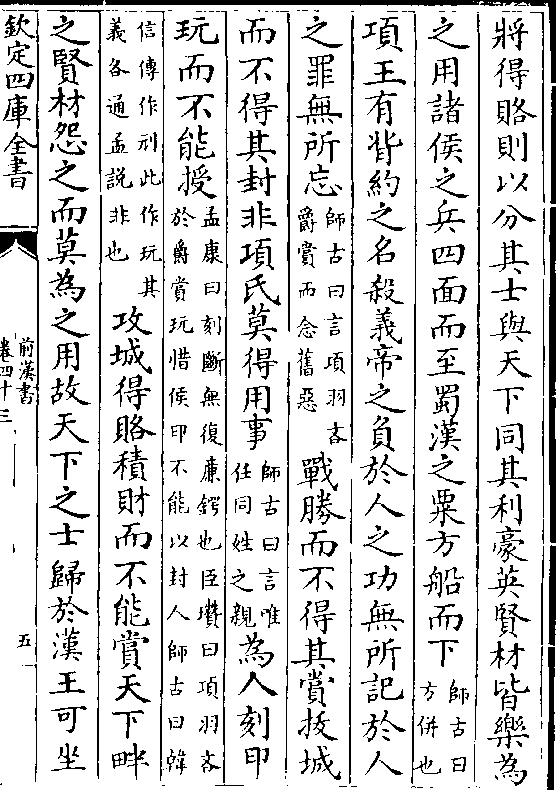 將得賂則以分其士與天下同其利豪英賢材皆樂為
之用諸侯之兵四面而至蜀漢之粟方船而下師古曰方併也
項王有背約之名殺義帝之負於人之功無所記於人
之罪無所忘師古曰言項羽吝爵賞而念舊惡戰勝而不得其賞拔城
而不得其封非項氏莫得用事師古曰言唯任同姓之親為人刻印
玩而不能授孟康曰刻斷無復廉鍔也臣瓚曰項羽吝於爵賞玩惜侯印不能以封人師古曰韓
信傳作刓此作玩其義各通孟説非也攻城得賂積財而不能賞天下畔
之賢材怨之而莫為之用故天下之士歸於漢王可坐
欽定四庫全書
前漢書
卷四十三
五